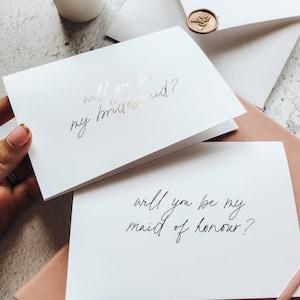 will you be
my bridesmaid?
will you be my
maid of honour?